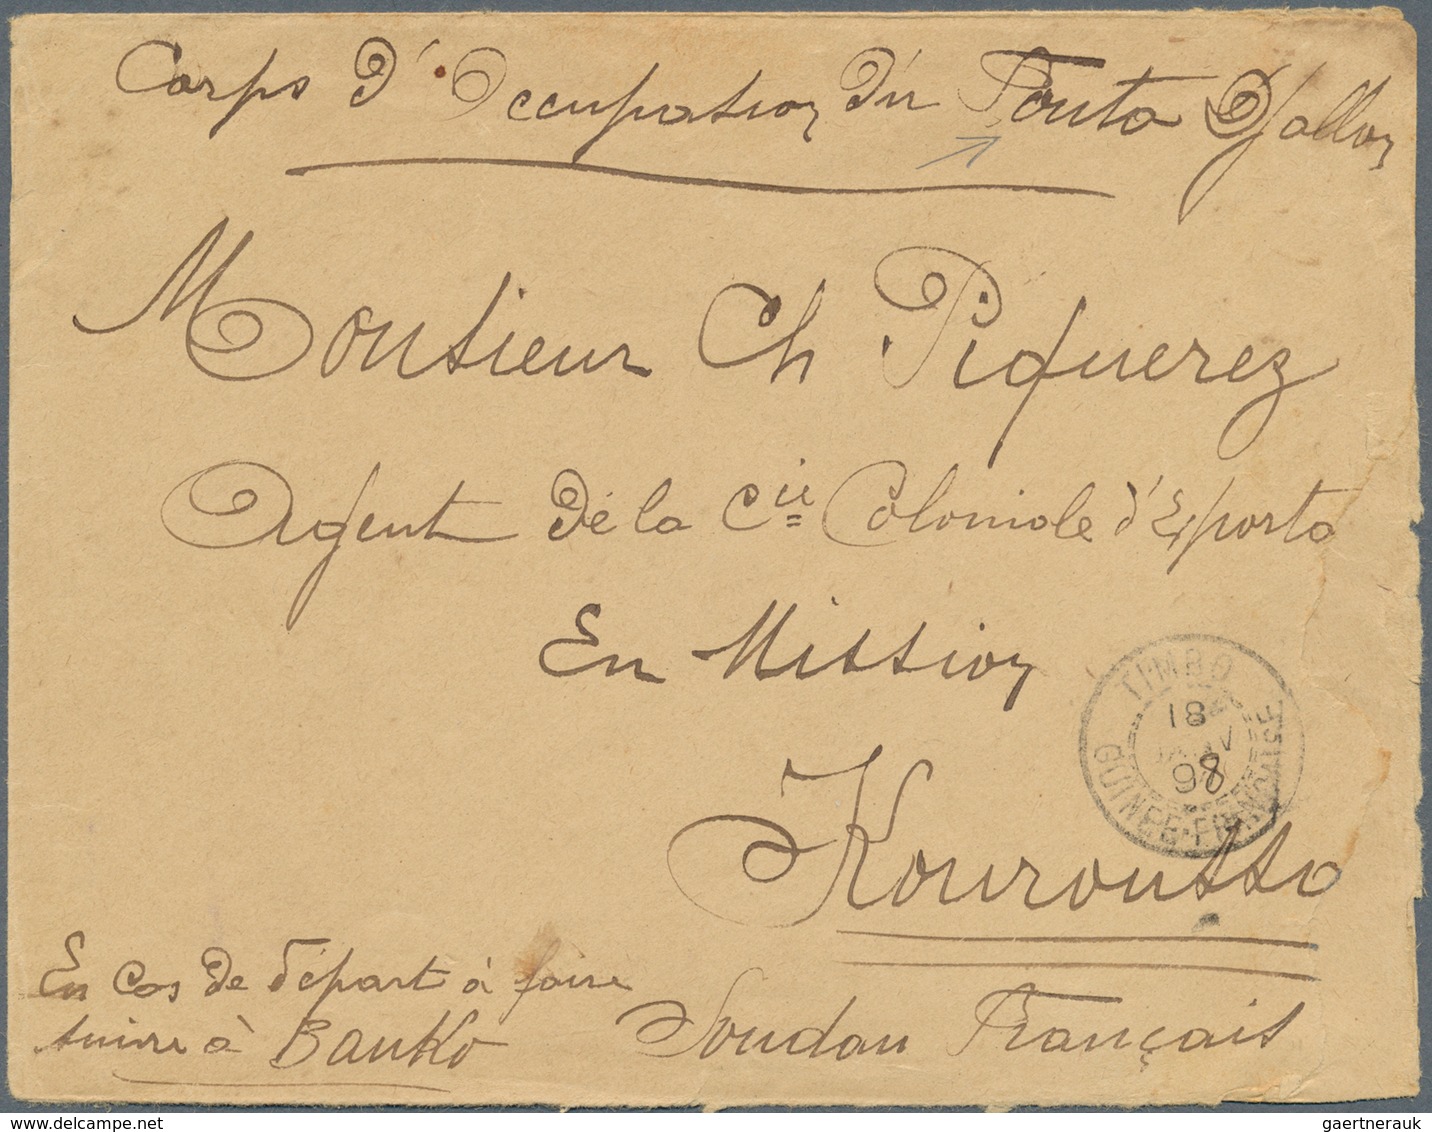 Corps d'Occupation du Fouta Djallon
Monsieur Ch Piquerez
Agent de la Cie Coloniale d'Exporta
En Mission
TIMBO
18
JANV
98
GUINÉE-FRANÇAISE
Kouroussa
En Cas de départ à faire
suivre à Banko
Soudan Français
gaertnerauk